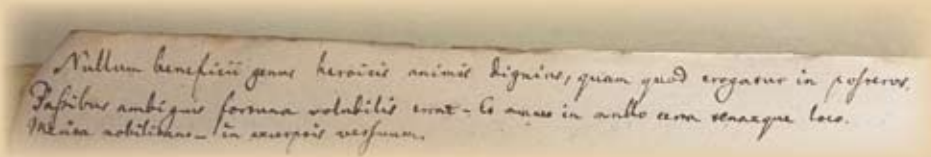 Nullum beneficii genus heroicis animis dignius, quam quod erogatur in posteros.
Passibus ambiguis fortuna volubilis errat - Et manet in nullo certa tenaxque loco.
nobilitant in